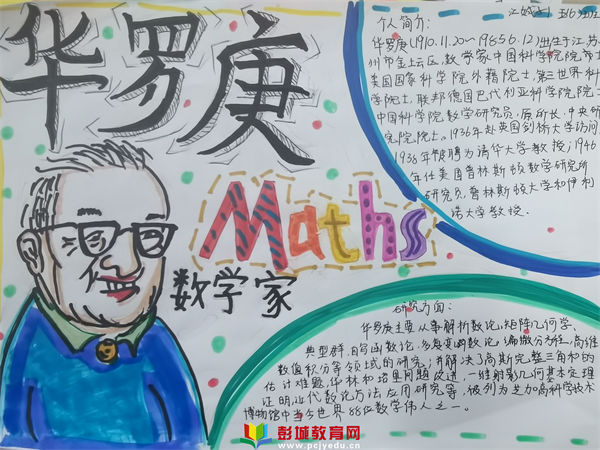 华罗庚
Maths
数学家
个人简介:
华罗庚(1910.11.20~1985.6.12)出生于江苏
州市金坛区,数学家中国科学院院士
美国国家科学院外籍院士,第三世界科
学院士,联邦德国巴伐利亚科学院院士
中国科学院数学研究员,原所长,中央研
究院院士。1936年赴英国剑桥大学访问
1938年被聘为清华大学教授;1946
年任美国普林斯顿数学研究所
研究员,普林斯顿大学和伊利
诺大学教授.
研究方面:
华罗庚主要从事解析数论,矩阵几何学、
典型群,自守函数论,多复变函数论,偏微分方程,高维
数值积分等领域的研究;并解决了高斯完整三角和的
估计难题,华林和塔里问题改进,一维射影几何基本定理
证明,近代数论方法应用研究等,被列为芝加哥科学技术
博物馆中当今世界88位数学伟人之一。
彭城教育网
www.pcjyedu.cn